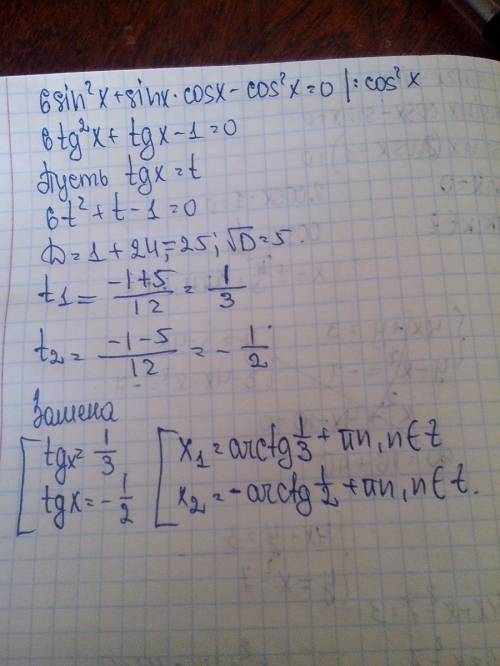 6sin²x+sinx·cosx-cos²x=0 |:cos²x
6tg²x+tgx-1=0
Пусть tgx=t
6t²+t-1=0
D=1+24=25; √D=5.
t1=(-1+5)/12=1/3
t2=(-1-5)/12=-1/2
Замена
[tgx=1/3 [x₁=arctg1/3+πn, n∈z
[tgx=-1/2 [x₂=-arctg1/2+πn, n∈z.